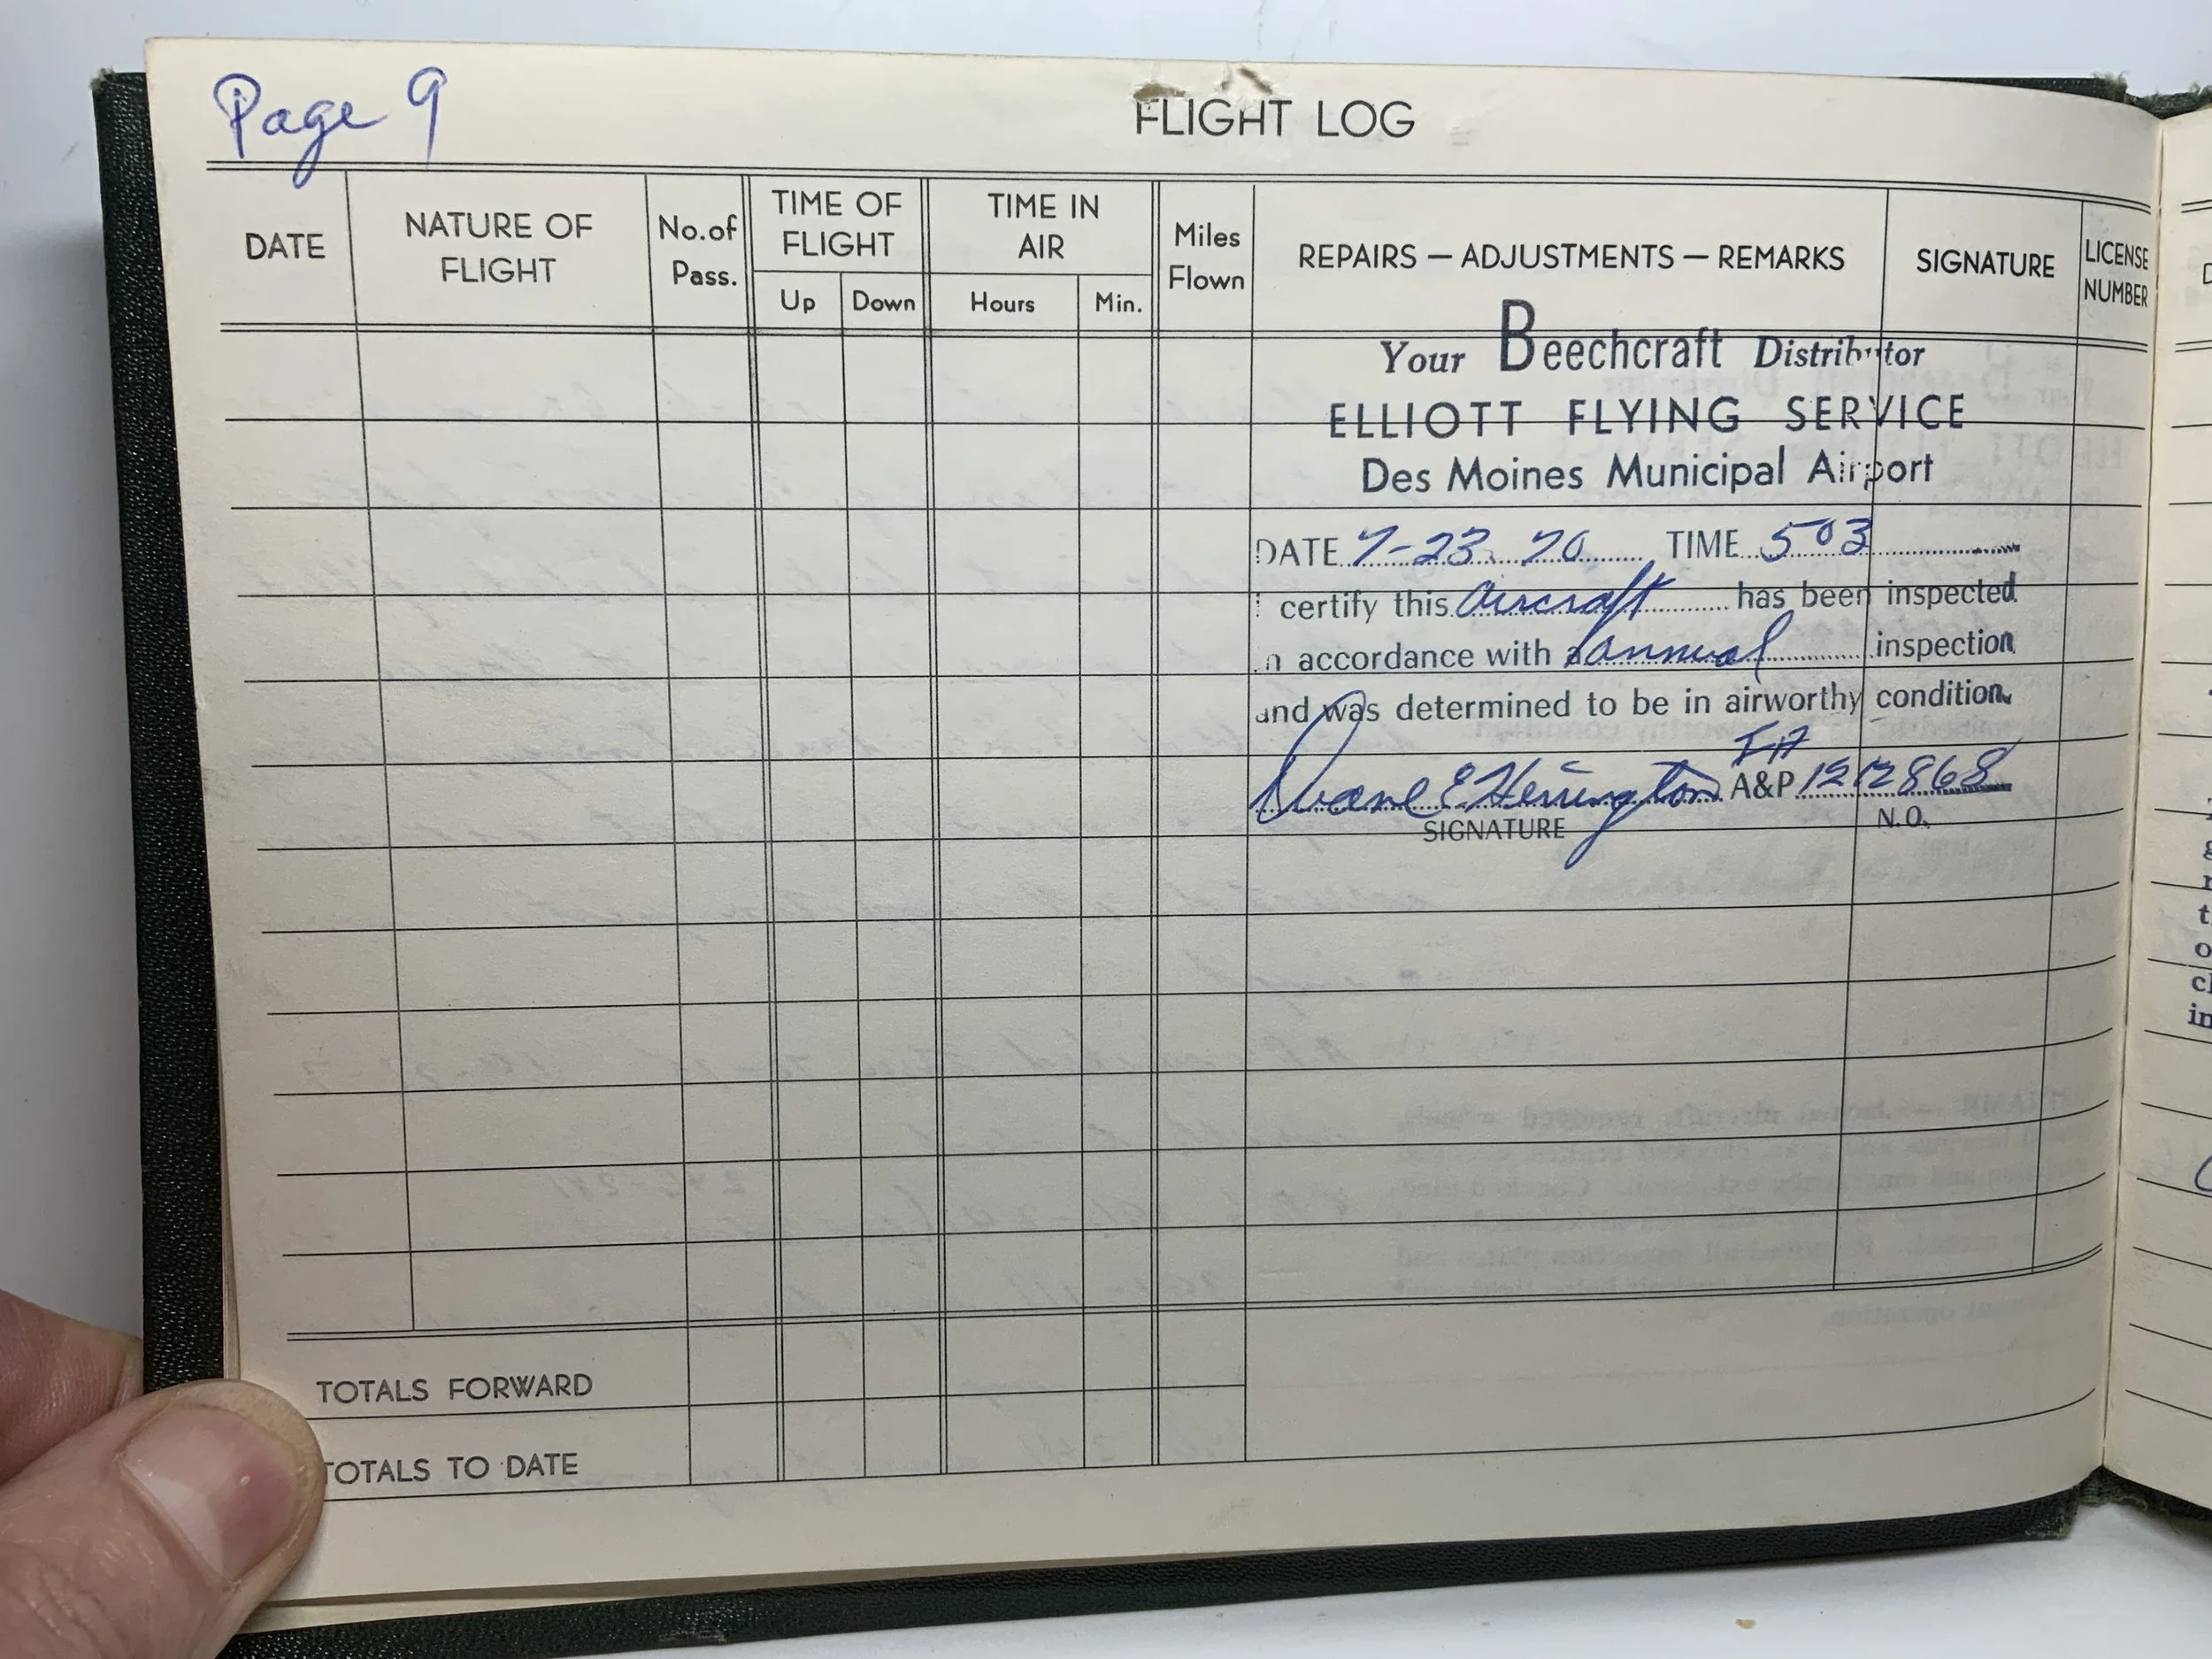 Page 9
FLIGHT LOG
DATE
NATURE OF FLIGHT
No.of Pass.
TIME OF FLIGHT
Up
Down
TIME IN AIR
Hours
Min.
Miles Flown
REPAIRS — ADJUSTMENTS — REMARKS
SIGNATURE
LICENSE NUMBER
Your Beechcraft Distributor
ELLIOTT FLYING SERVICE
Des Moines Municipal Airport
DATE 7-23-70 TIME 503
I certify this aircraft has been inspected
in accordance with annual inspection
and was determined to be in airworthy condition.
IA
Duane E Herrington A&P 1212868
SIGNATURE N.O.
TOTALS FORWARD
TOTALS TO DATE